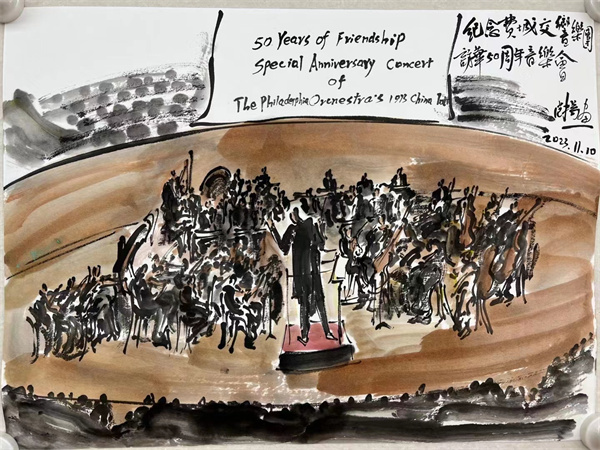 50 Years of Friendship
Special Anniversary Concert
of
The Philadephia Orchestra's 1973 China
纪念费城交響樂團
訪華50周年音樂會
2023.11.10